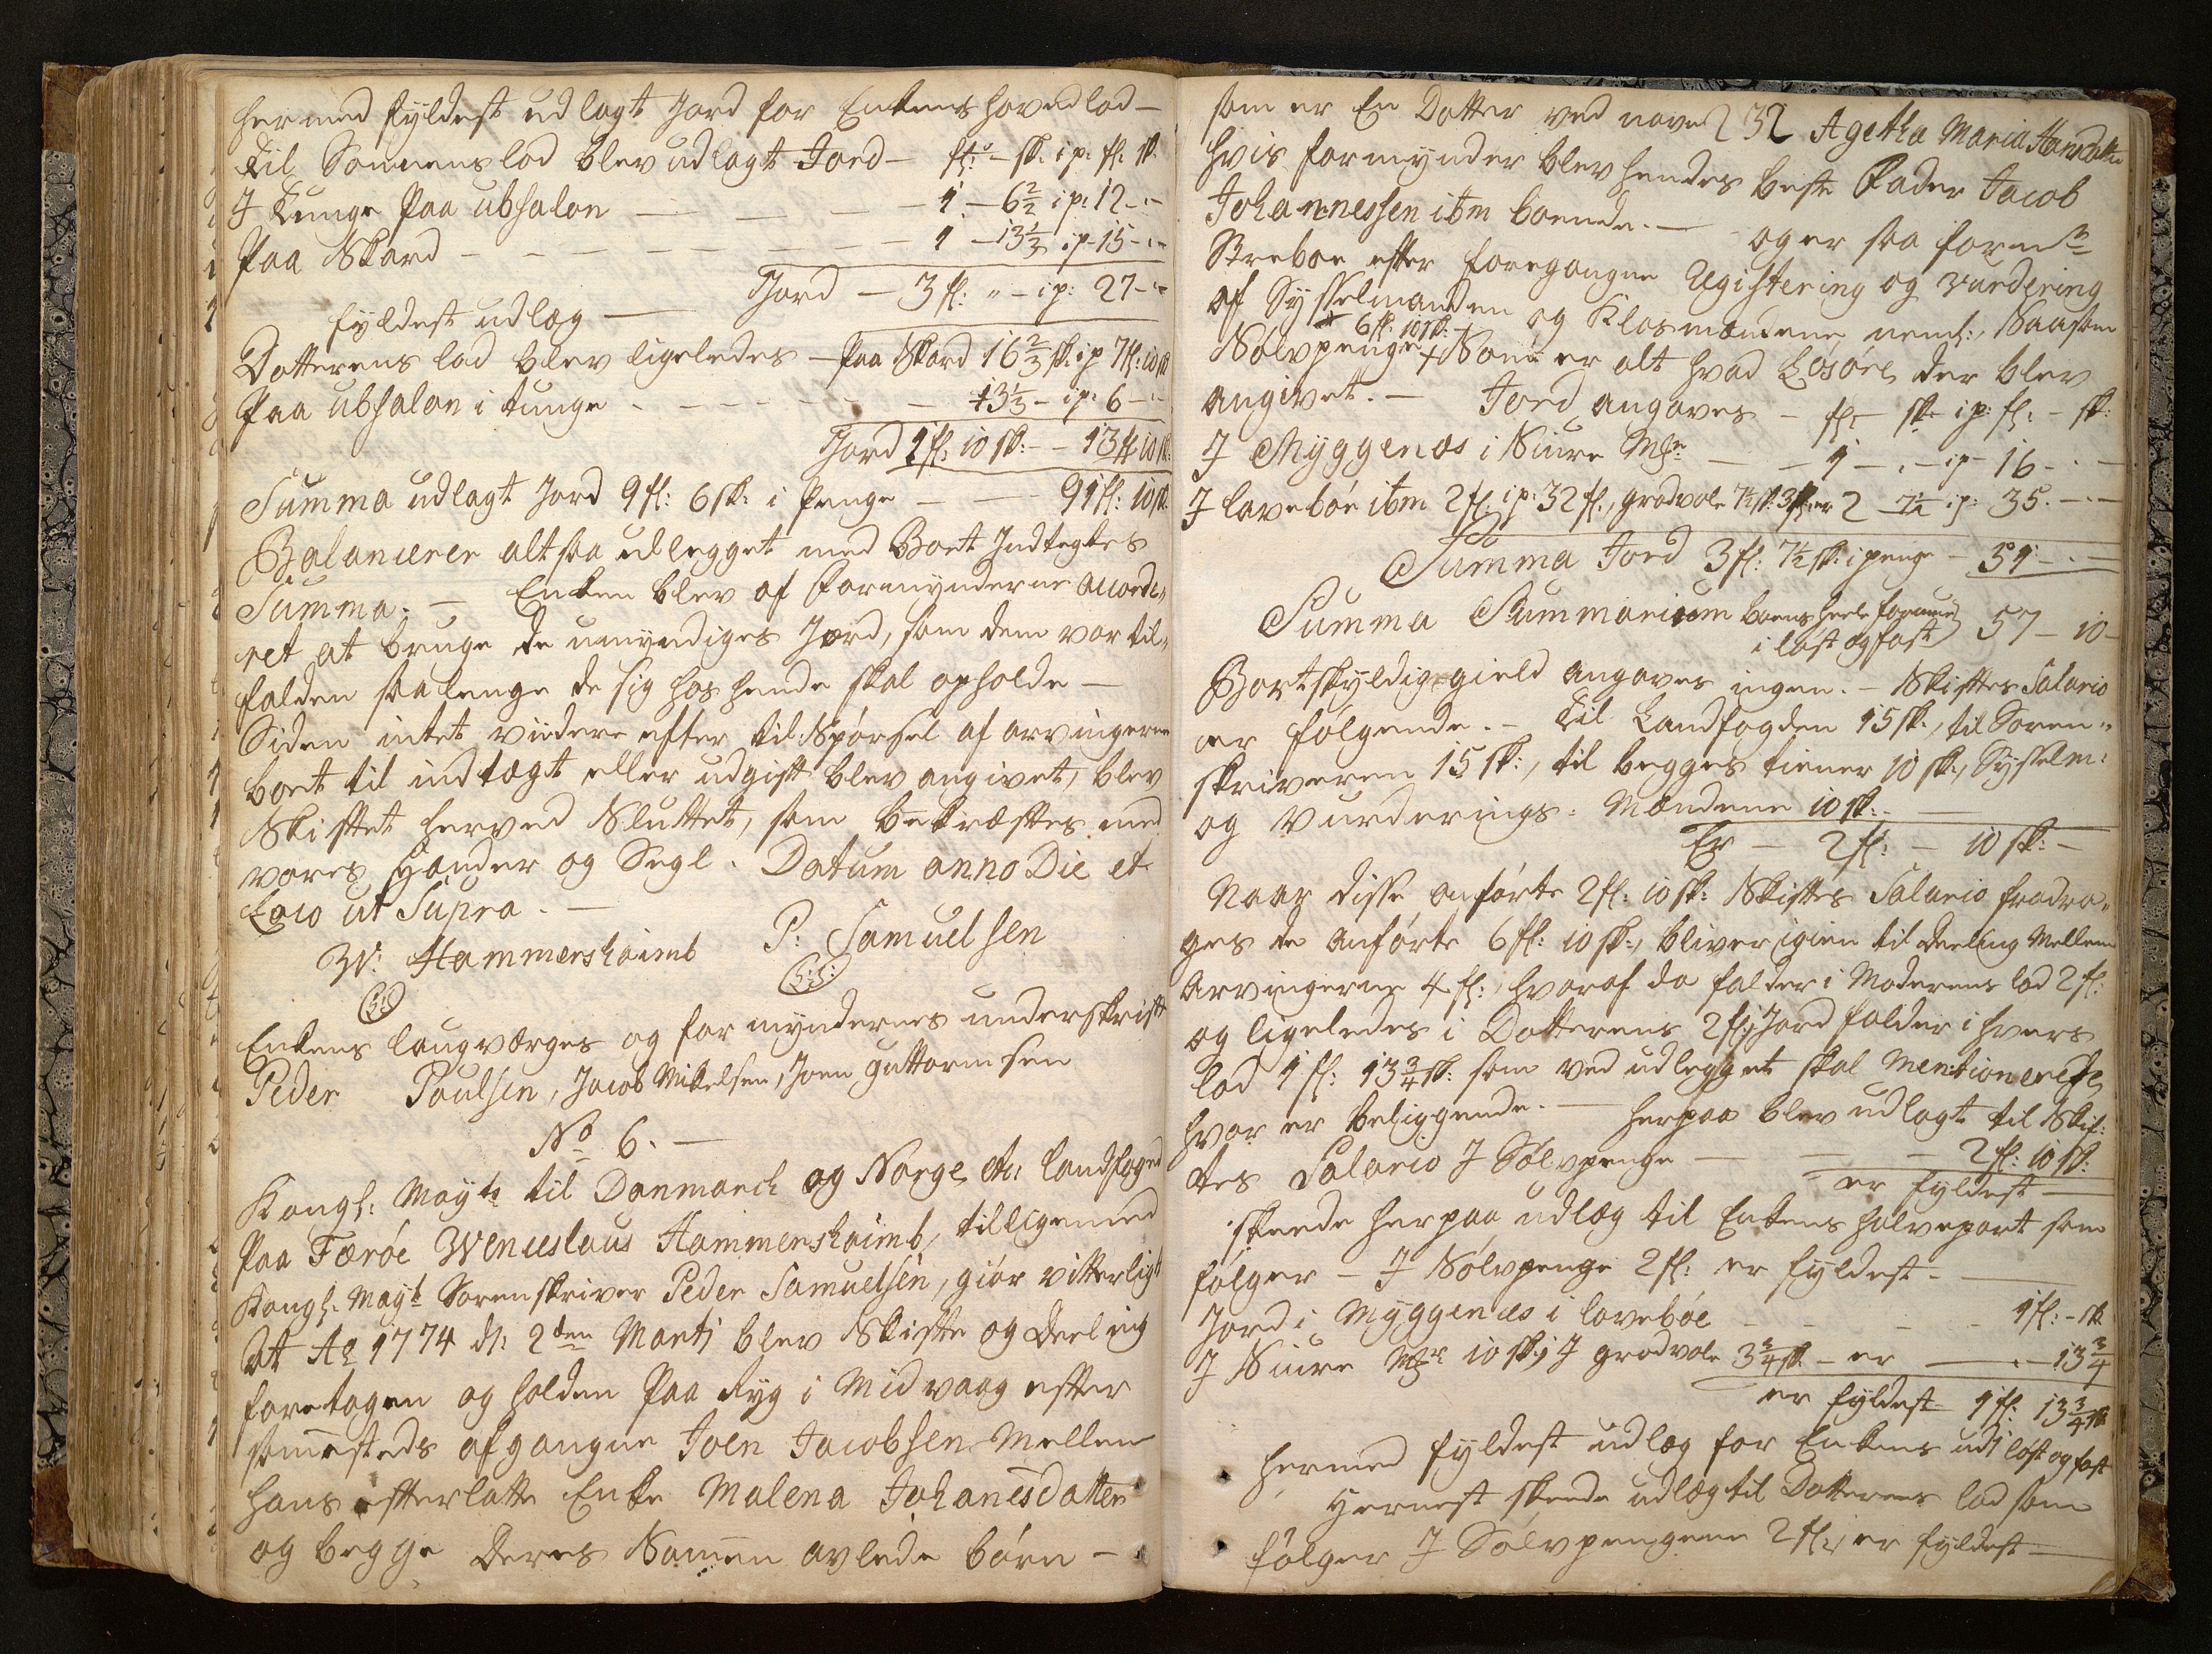 hermed fyldest udlagt Jord for Enkens hovedlod —
til Sønnens lod blev udlagt Jord — fl: — sk. ip: fl: sk.
J Tunge Paa ubsalon — — — 1 — 6 2/2 ip: 12 — " —
Paa Skard — — — — 1 — 13 1/3 ip 15 — " —
fyldest udlæg — Jord — 3 fl: " — ip: 27 — " —
Dotterens lod blev ligeledes — Paa Skard 16 2/3 sk. ip 7 fl: 10 sk
Paa ubsalon i tunge — — — 13 1/3 — ip: 6 — " —
Jord 1 fl: 10 sk: — 13 fl 10 sk:
Summa udlagt Jord 9 fl: 6 sk: i Penge — — 91 fl: 10 sk.
Balancerer altsaa udlegget med Boet Indtegtes
Summa. — Enken blev af Formynderne accorde„
ret at bruge de umyndiges Jord, som dem var til„
falden saalenge de sig hos hende skal opholde —
Siden intet viidere efter til Spørsel af arvingerne
boet til indtægt eller udgift blev angivet, blev
Skiftet herved Sluttet, som bekræftes med
vores Hænder og Segl. Datum anno Die et
Loco ut Supra. —
W: Hammershaimb P: Samuelsen
(L:S:) (L:S:)
Enkens laugværges og formyndernes underskrift
Peder Poulsen, Jacob Mikelsen, Joen Guttormsen
No 6. —
Kongl: Mayts til Danmarck og Norge etc: landfoged
Paa Færøe Wenceslaus Hammershaimb, tilligemed
Kongl: Mayt Sorenskriver Peder Samuelsen, giør vitterligt
At Ao 1774 d: 2den Martj blev Skifte og Deeling
foretagen og holden Paa Ryg i Midvaag efter
sammesteds afgangne Joen Jacobsen Mellem
hans efterlatte Enke Malena Johanesdatter
og begge deres Sammen avlede børn —
som er En Dotter ved navn 232 Agetha Maria Hansdatter
hvis formynder blev hendes beste Fader Jacob
Johannessen ibm boende. — og er saa formdn
Sterboe efter foregangne Registering og vurdering
af Sysselmanden og Klosmændene neml: Saasom
+ 6 fl: 10 sk: +
Sølvpenge + Som er alt hvad Løsøre der blev
angivet. — Jord angaves — fl: — sk — ip: fl: — sk:
J Myggenæs i Niure Mr — — 1 — . — ip — 16 — . —
J lavebøe ibm 2 fl: ip: 32 fl:, gradvole 7 1/2 sk: 3 fl: er 2 7 1/2 ip: 35. — . —
Summa Jord 3 fl: 7 1/2 sk: i penge — 51 — . —
Summa Summarium boens heele formue
i løst og fast 57 — 10 —
Bortskyldig gield angaves ingen. — Skiftes Salario
er følgende. — til Landfogden 15 sk., til Soren„
skriveren 15 sk:, til begges tiener 10 sk:, Sysselm:
og Vurderings: Mændene 10 sk: —
Er — 2 fl: — 10 sk: —
Naar disse anførte 2 fl: 10 sk: Skiftes Salario fradra„
ges de anførte 6 fl: 10 sk:, bliver igien til deeling Mellem
Arvingerne 4 fl:, hvoraf da falder i Moderens lod 2 fl:
og ligeledes i Dotterens 2 fl: Jord falder i hvers
lod 1 fl: 13 3/4 sk: som ved udlegget skal Mentioneres
hvor er beliggende. — herpaa blev udlagt til Skif:
tes Salario J Sølvpenge — — — 2 fl: 10 sk:
er fyldest —
skeede herpaa udlæg til Enkens halvepart som
følger — J Sølvpenge 2 fl: er fyldest —
Jord i Myggenæs i lavebøe — — — 1 fl: — sk
J Niure Mr 10 sk:, J gradvole 3 3/4 sk — er — . — 13 3/4
er fyldest 1 fl: 13 3/4 sk
hermed fyldest udlæg for Enkens udj løst og fast
hernest skeede udlæg til Dotterens lod som
følger J Sølvpengene 2 fl:, er fyldest —